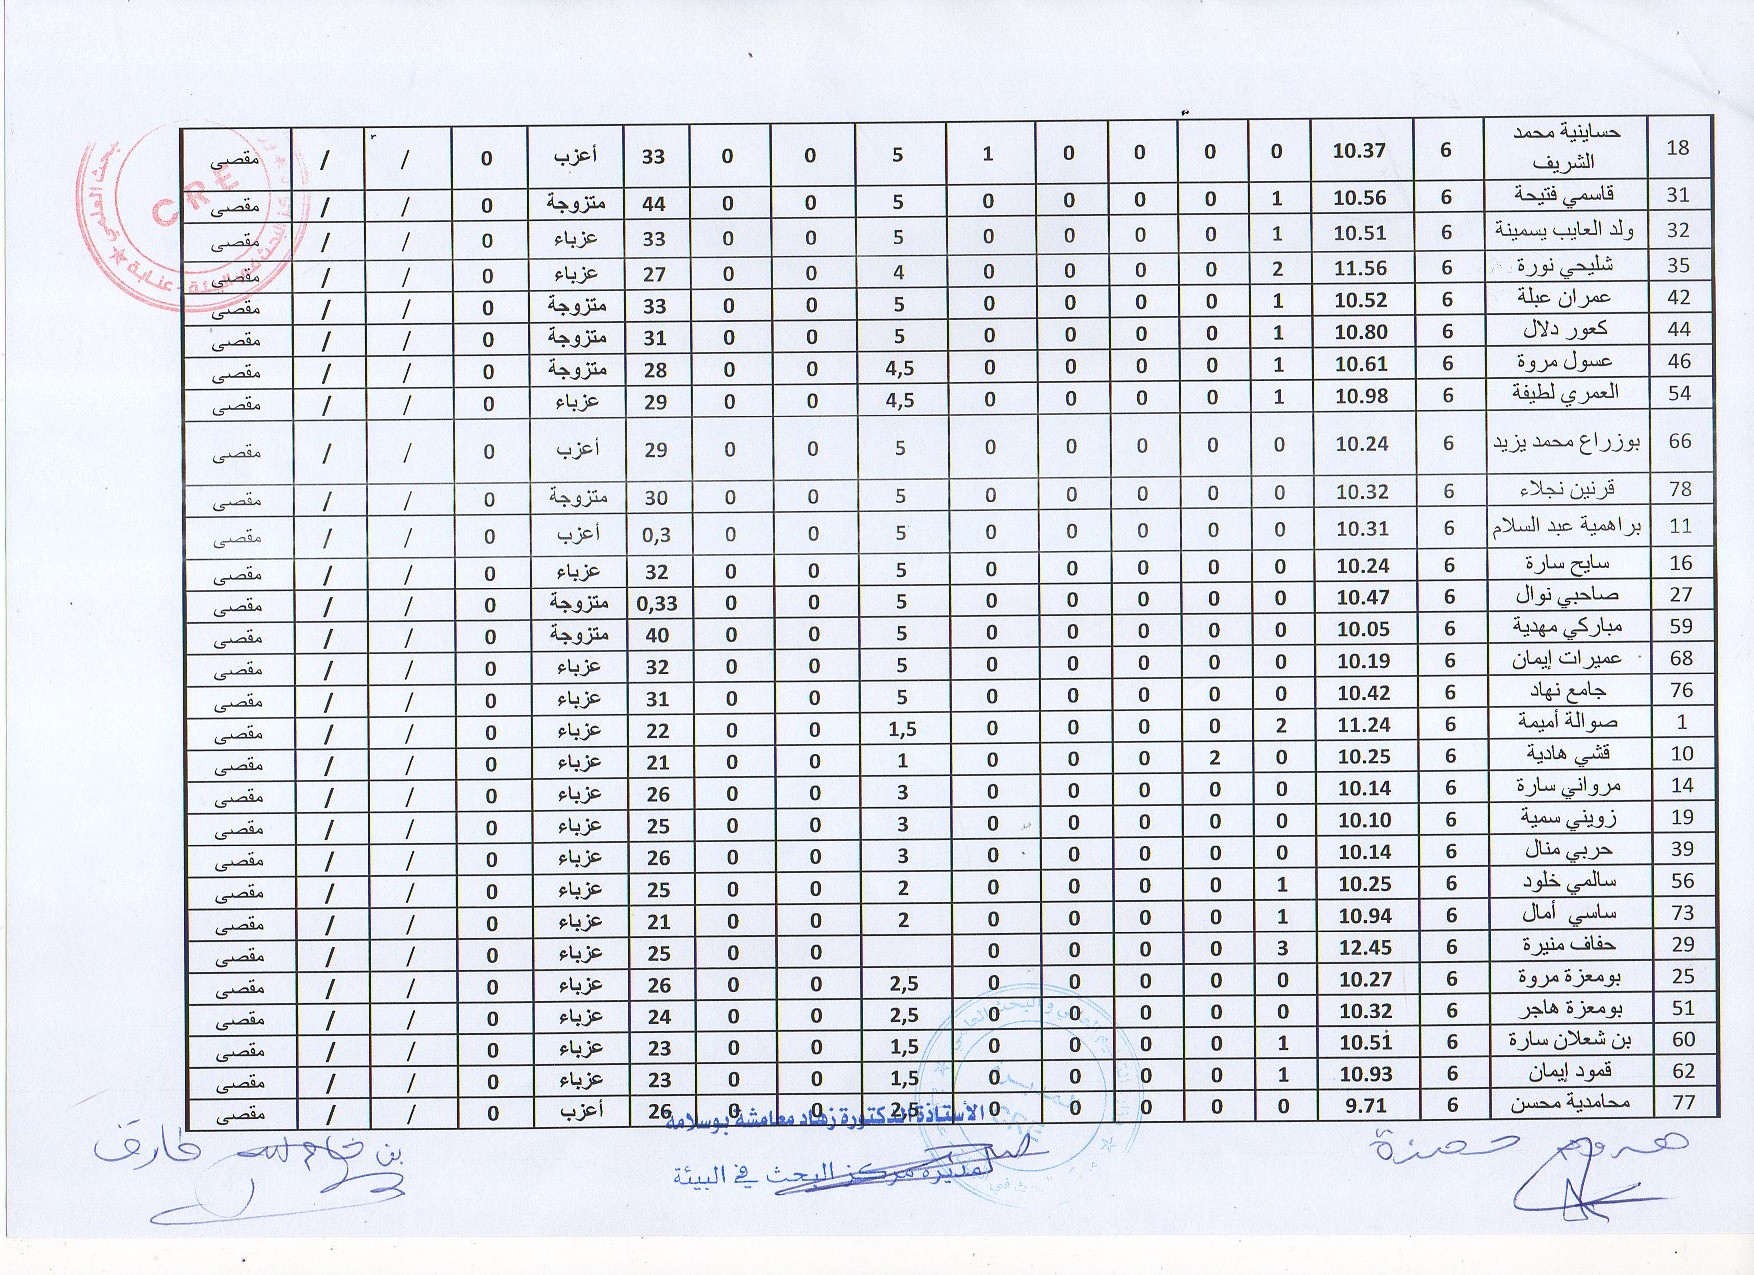 18 حساينية محمد الشريف 6 10.37 0 0 0 0 1 5 0 0 33 أعزب 0 / / مقصى
31 قاسمي فتيحة 6 10.56 1 0 0 0 0 5 0 0 44 متزوجة 0 / / مقصى
32 ولد العايب يسمينة 6 10.51 1 0 0 0 0 5 0 0 33 عزباء 0 / / مقصى
35 شليحي نورة 6 11.56 2 0 0 0 0 4 0 0 27 عزباء 0 / / مقصى
42 عمران عبلة 6 10.52 1 0 0 0 0 5 0 0 33 متزوجة 0 / / مقصى
44 كعور دلال 6 10.80 1 0 0 0 0 5 0 0 31 متزوجة 0 / / مقصى
46 عسول مروة 6 10.61 1 0 0 0 0 4,5 0 0 28 متزوجة 0 / / مقصى
54 العمري لطيفة 6 10.98 1 0 0 0 0 4,5 0 0 29 عزباء 0 / / مقصى
66 بوزراع محمد يزيد 6 10.24 0 0 0 0 0 5 0 0 29 أعزب 0 / / مقصى
78 قرنين نجلاء 6 10.32 0 0 0 0 0 5 0 0 30 متزوجة 0 / / مقصى
11 براهمية عبد السلام 6 10.31 0 0 0 0 0 5 0 0 0,3 أعزب 0 / / مقصى
16 سايح سارة 6 10.24 0 0 0 0 0 5 0 0 32 عزباء 0 / / مقصى
27 صاحبي نوال 6 10.47 0 0 0 0 0 5 0 0 0,33 متزوجة 0 / / مقصى
59 مباركي مهدية 6 10.05 0 0 0 0 0 5 0 0 40 متزوجة 0 / / مقصى
68 عميرات إيمان 6 10.19 0 0 0 0 0 5 0 0 32 عزباء 0 / / مقصى
76 جامع نهاد 6 10.42 0 0 0 0 0 5 0 0 31 عزباء 0 / / مقصى
1 صوالة أميمة 6 11.24 2 0 0 0 0 1,5 0 0 22 عزباء 0 / / مقصى
10 قشي هادية 6 10.25 0 2 0 0 0 1 0 0 21 عزباء 0 / / مقصى
14 مرواني سارة 6 10.14 0 0 0 0 0 3 0 0 26 عزباء 0 / / مقصى
19 زويني سمية 6 10.10 0 0 0 0 0 3 0 0 25 عزباء 0 / / مقصى
39 حربي منال 6 10.14 0 0 0 0 0 3 0 0 26 عزباء 0 / / مقصى
56 سالمي خلود 6 10.25 1 0 0 0 0 2 0 0 25 عزباء 0 / / مقصى
73 ساسي أمال 6 10.94 1 0 0 0 0 2 0 0 21 عزباء 0 / / مقصى
29 حفاف منيرة 6 12.45 3 0 0 0 0 0 0 25 عزباء 0 / / مقصى
25 بومعزة مروة 6 10.27 0 0 0 0 0 2,5 0 0 26 عزباء 0 / / مقصى
51 بومعزة هاجر 6 10.32 0 0 0 0 0 2,5 0 0 24 عزباء 0 / / مقصى
60 بن شعلان سارة 6 10.51 1 0 0 0 0 1,5 0 0 23 عزباء 0 / / مقصى
62 قمود إيمان 6 10.93 1 0 0 0 0 1,5 0 0 23 عزباء 0 / / مقصى
77 محامدية محسن 6 9.71 0 0 0 0 0 2,5 0 0 26 أعزب 0 / / مقصى
الأستاذة الدكتورة زهاد معامشة بوسلامة
مديرة مركز البحث في البيئة
حمزة
طارق
CRE